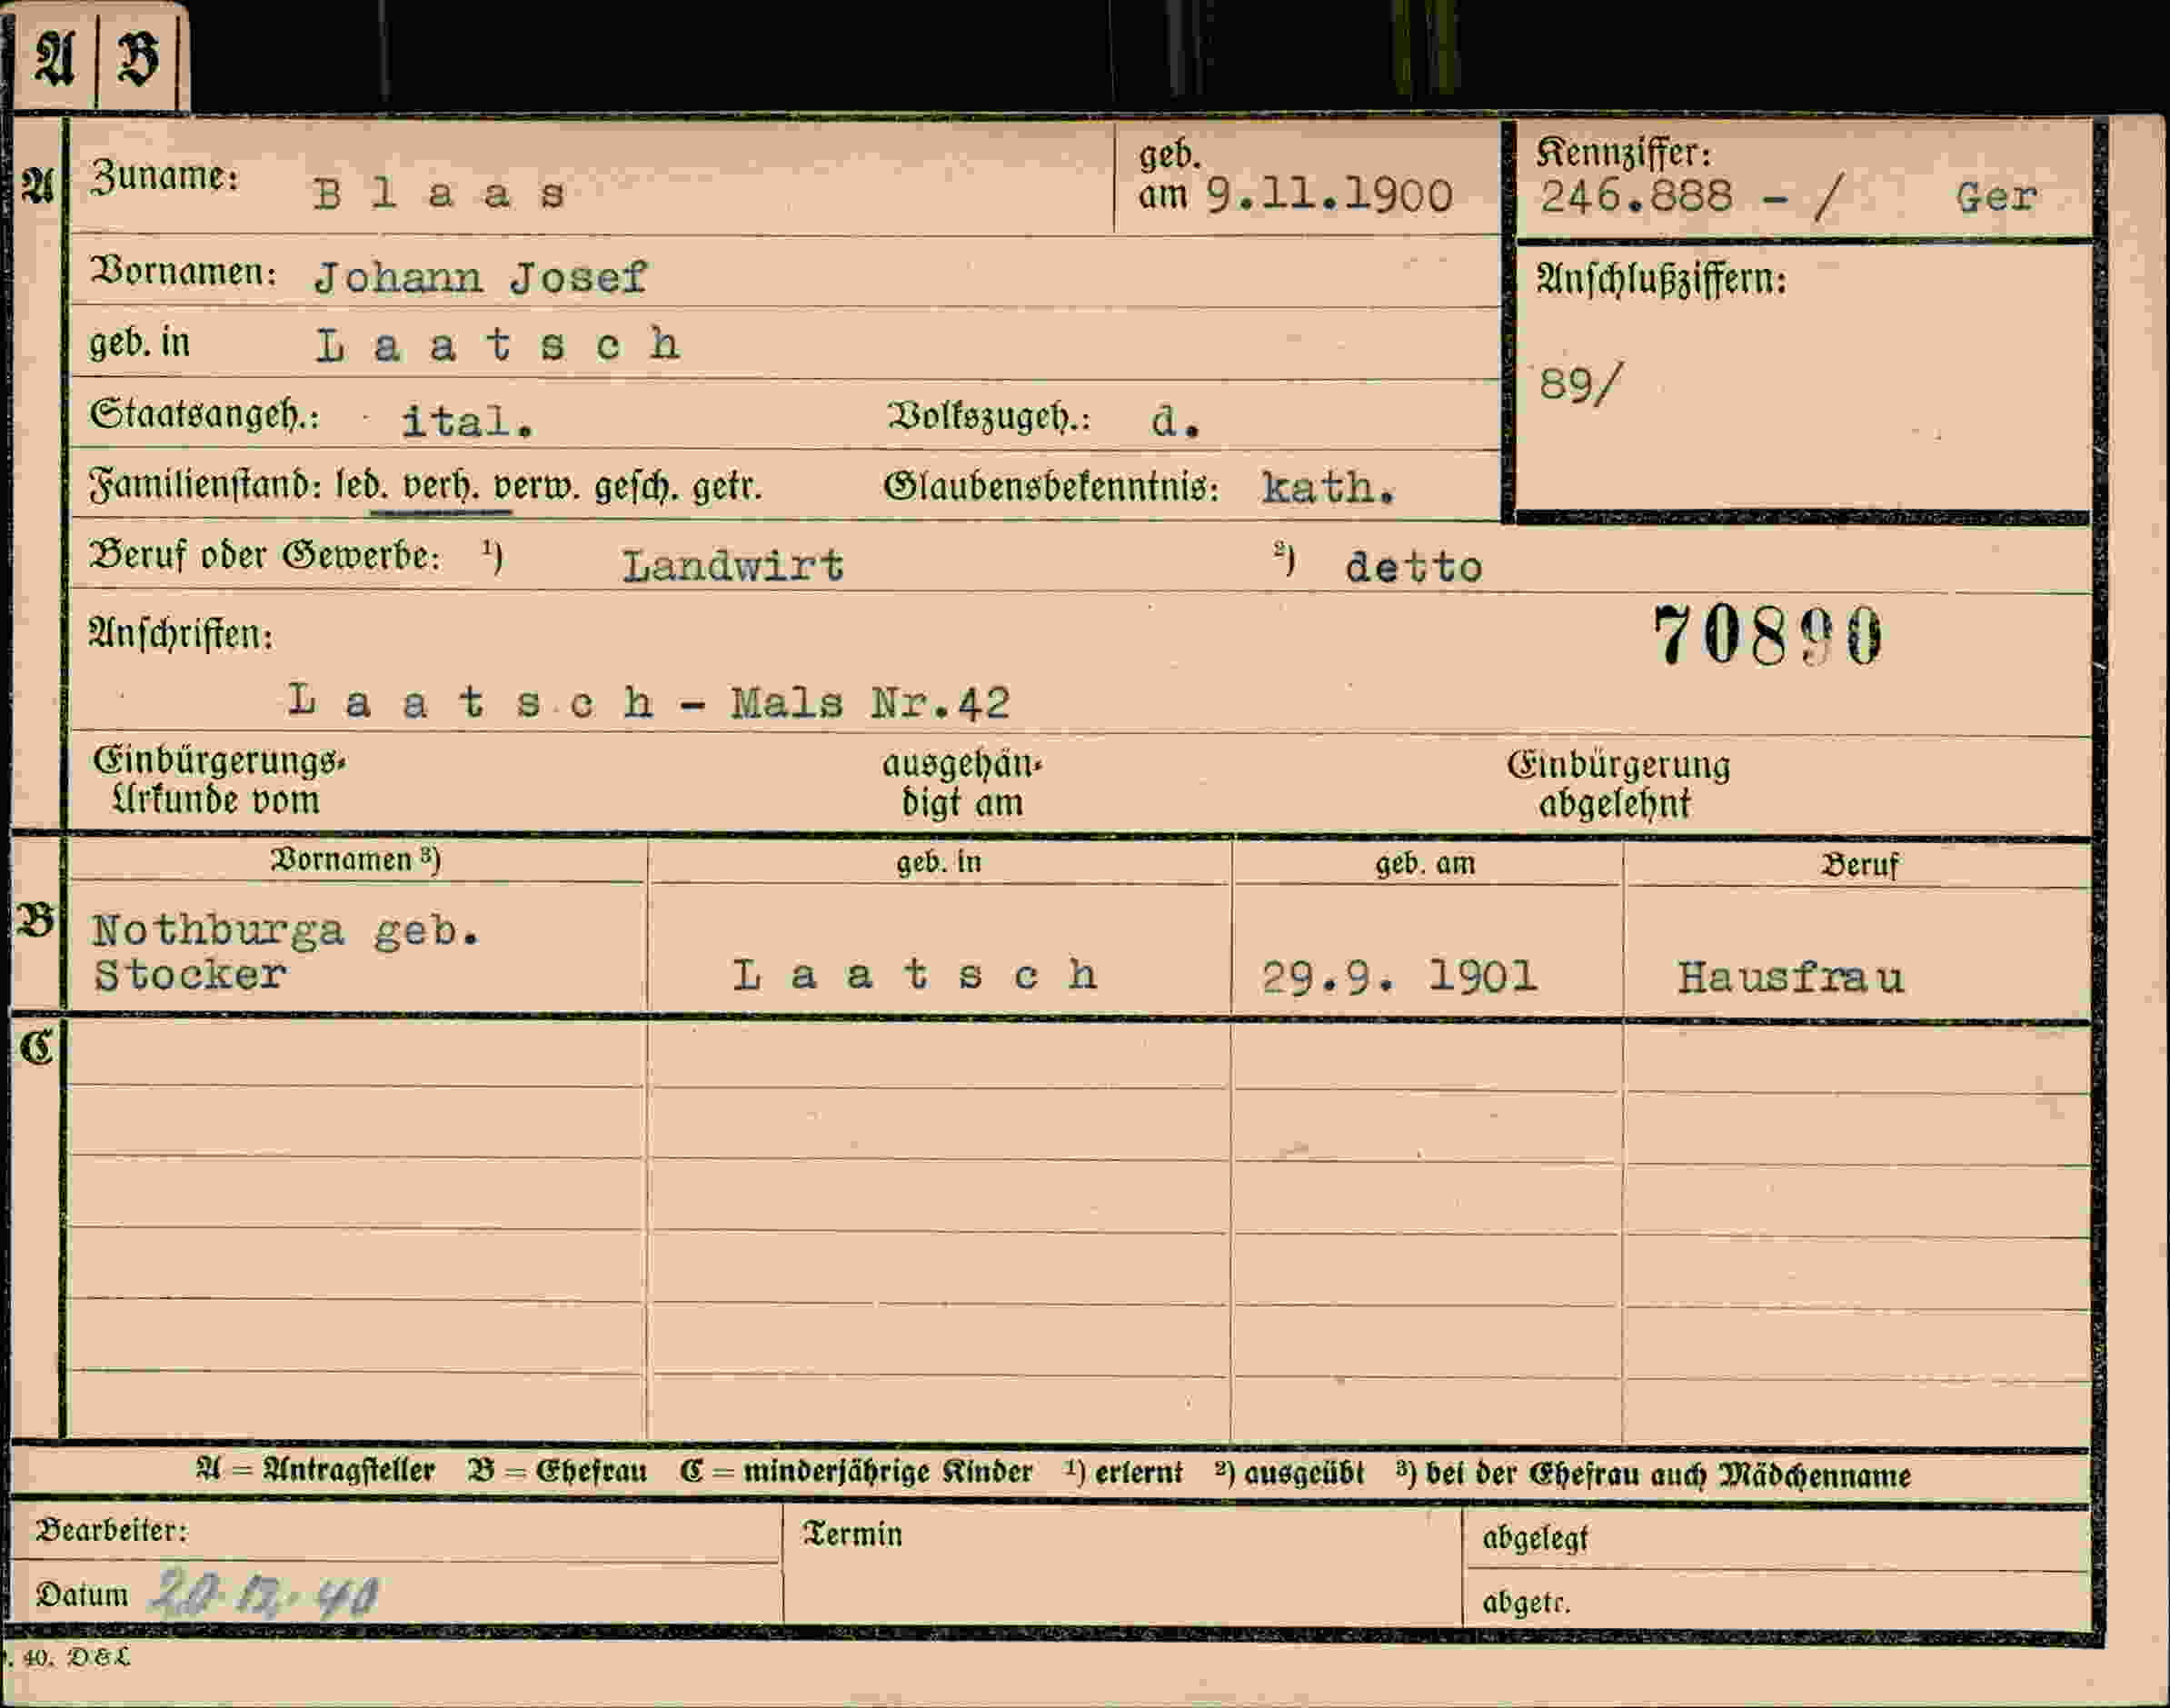 A B
A Zuname: B l a a s geb. am 9.11.1900 Kennziffer: 246.888 - / Ger
Vornamen: Johann Josef Anschlußziffern:
geb. in L a a t s c h 89/
Staatsangeh.: ital. Volkszugeh.: d.
Familienstand: led. verh. verw. gesch. getr. Glaubensbekenntnis: kath.
Beruf oder Gewerbe: ¹) Landwirt ²) detto
Anschriften: 70890
L a a t s c h - Mals Nr.42
Einbürgerungs- ausgehän- Einbürgerung
Urkunde vom digt am abgelehnt
Vornamen ³) geb. in geb. am Beruf
B Nothburga geb.
Stocker L a a t s c h 29.9. 1901 Hausfrau
C
A = Antragsteller B = Ehefrau C = minderjährige Kinder ¹) erlernt ²) ausgeübt ³) bei der Ehefrau auch Mädchenname
Bearbeiter: Termin abgelegt
Datum 20. 12. 40 abgetr.
. 40. D & L